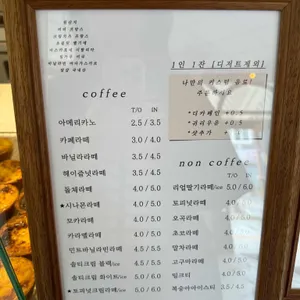 1인 1잔 [디저트제외]
나만의 커스텀 음료!
주문하세요
*디카페인 +0.5
*샷추가 +0.5
coffee
T/O IN
아메리카노 2.5 / 3.5
카페라떼 3.0 / 4.0
바닐라라떼 3.5 / 4.5
헤이즐넛라떼 3.5 / 4.5
돌체라떼 4.0 / 5.0
★시나몬라떼 4.0 / 5.0
모카라떼 4.0 / 5.0
카라멜라떼 4.0 / 5.0
민트바닐라라떼 4.0 / 5.0
솔티크림 블랙/ice 4.5 / 5.5
솔티크림 화이트/ice 5.0 / 6.0
★토피넛크림라떼/ice 5.0 / 6.0
non coffee
T/O IN
리얼딸기라떼/ice 5.0 / 6.0
토피넛라떼 4.0 / 5.0
오곡라떼 4.0 / 5.0
초코라떼 4.0 / 5.0
말차라떼 4.0 / 5.0
고구마라떼 4.0 / 5.0
밀크티 4.0 / 5.0
복숭아아이스티